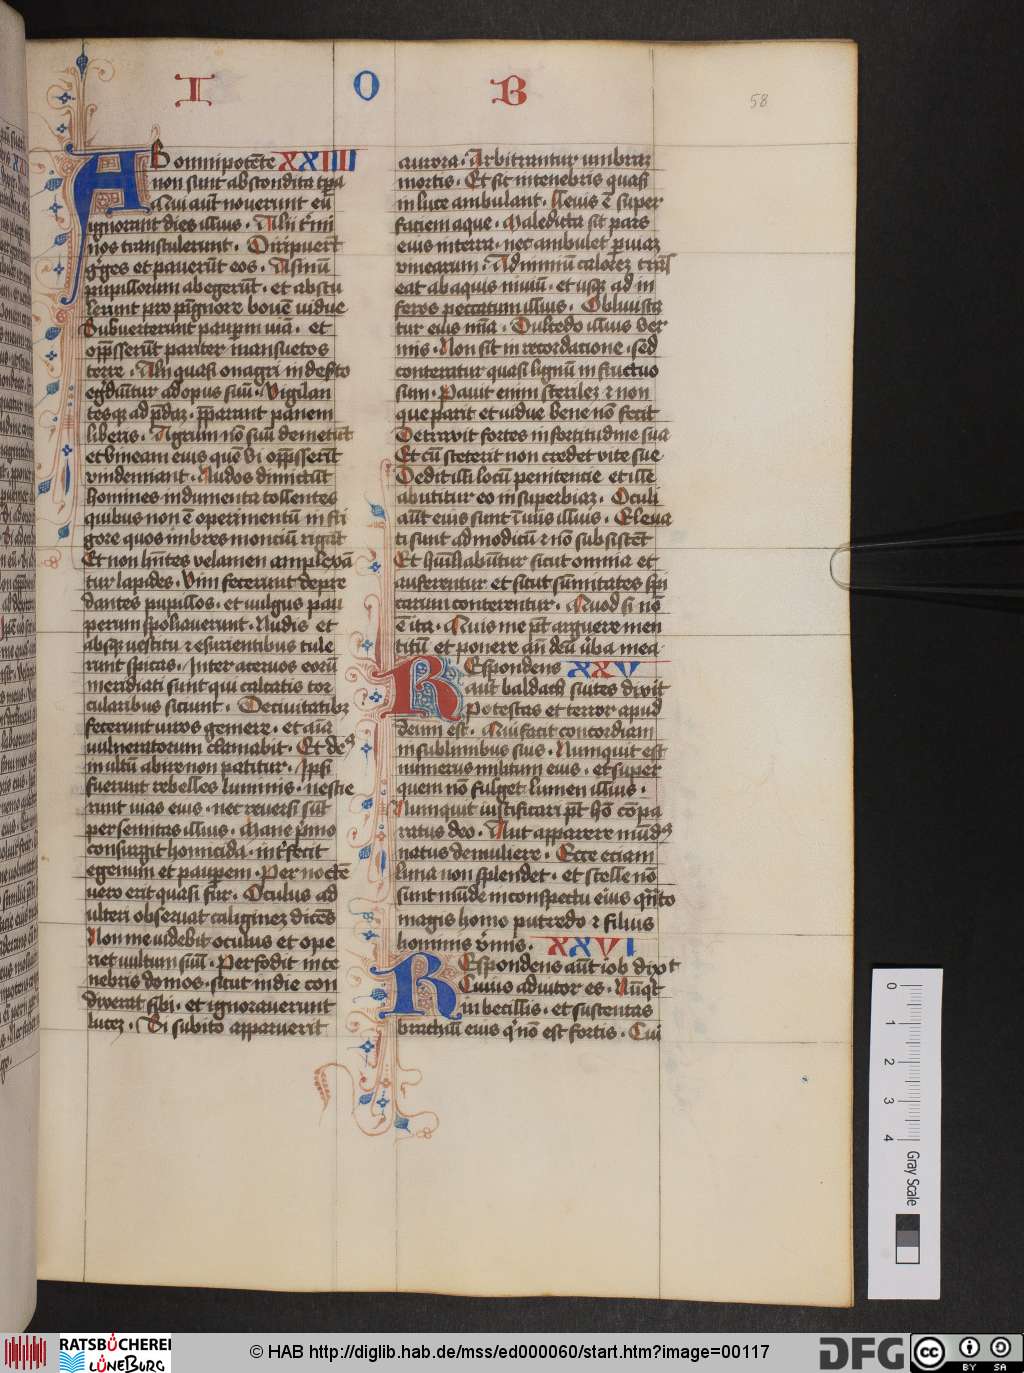 I O B
58
AB omnipotēte XXIIII
non sunt abscondita tpa
Qui aut novernt eū
ignorant dies illius. Alii t'mi
nos transtulerunt. Diripuert
g'ges et paverūt eos. Asinū
pupillorum abegerūt. et abstu
lerunt pro pignore bovē vidue
Subverterunt paupm viā. et
oppsserūt pariter mansuetos
terre. Alii quasi onagri in desto
egdiūtur ad opus suū. Vigilan
tesqz ad pdaz. pparant panem
liberis. Agrum nō suū demetūt
et vineam eius quē vi oppsserūt
vindemiant. Nudos dimictūt
homines indumenta tollentes
quibus non ē operimentū in fri
gore quos imbres monciū rigāt
Et non hntes velamen amplexā
tur lapides. Vim fecerunt depre
dantes pupillos. et vulgus pau
perum spoliaverunt. Nudis et
absqz vestitu et esurientibus tule
runt spicas. Inter acervos eorū
meridiati sunt qui calcatis tor
cularibus siciunt. De civitatibz
fecerunt viros gemere. et aīa
vulneratorum clamabit. Et de9
inultū abire non patitur. Ipsi
fuerunt rebelles luminis. nescie
runt vias eius. nec reversi sūt
per semitas illius. Mane primo
consurgit homicida. intfecit
egenum et paupem. Per noctē
vero erit quasi fur. Oculus ad
ulteri observat caliginez dicēs
Non me videbit oculus et ope
riet vultum suū. Perfodit in te
nebris domos. sicut in die con
dixerat sibi. et ignoraverunt
lucez. Si subito apparuerit
aurora. Arbitrantur umbraz
mortis. Et sic in tenebris quasi
in luce ambulant. Levis ē super
faciem aque. Maledicta sit pars
eius in terra. nec ambulet p viaz
vinearum. Ad nimiū calorez trās
eat ab aquis niviū. et usqz ad in
feros peccatum illius. Obliviscа
tur eius mīa. Dulcedo illius ver
mis. Non sit in recordacione. sed
conteratur quasi lignū in fructuo
sum. Pavit enim sterilez et non
que parit et vidue bene non fecit
Detraxit fortes in fortitudine sua
Et cū steterit non credet vite sue
Dedit illi locū penitencie et ille
abutitur eo in superbiaz. Oculi
aūt eius sunt ī viis illius. Eleva
ti sunt ad modicū et nō subsistēt
Et hūiliabūntur sicut omnia et
auferentur et sicut sūmitates spi
carum conterentur. Quod si nō
ē ita. Quis me pt arguere men
titū et ponere añ deū vba mea
REspondens XXV
aut baldach suites dixit
Potestas et terror apud
deum est. Qui facit concordiam
in sublimibus suis. Numquit est
numerus militum eius. et super
quem nō fulget lumen illius.
Numquit iustificari pt hō cōpa
ratus deo. Aut apparere mūd9
natus de muliere. Ecce eciam
luna non splendet. et stelle nō
sunt mūde in conspectu eius qnto
magis homo putredo et filius
hominis vmis. XXVI
REspondens aūt iob dixit
Cuius adiutor es. Nūqt
imbecillis. et sustentas
brachiū eius q' nō est fortis. Cui
0 1 2 3 4
Gray Scale
RATSBÜCHEREI LÜNEBURG
© HAB http://diglib.hab.de/mss/ed000060/start.htm?image=00117
DFG
cc BY SA